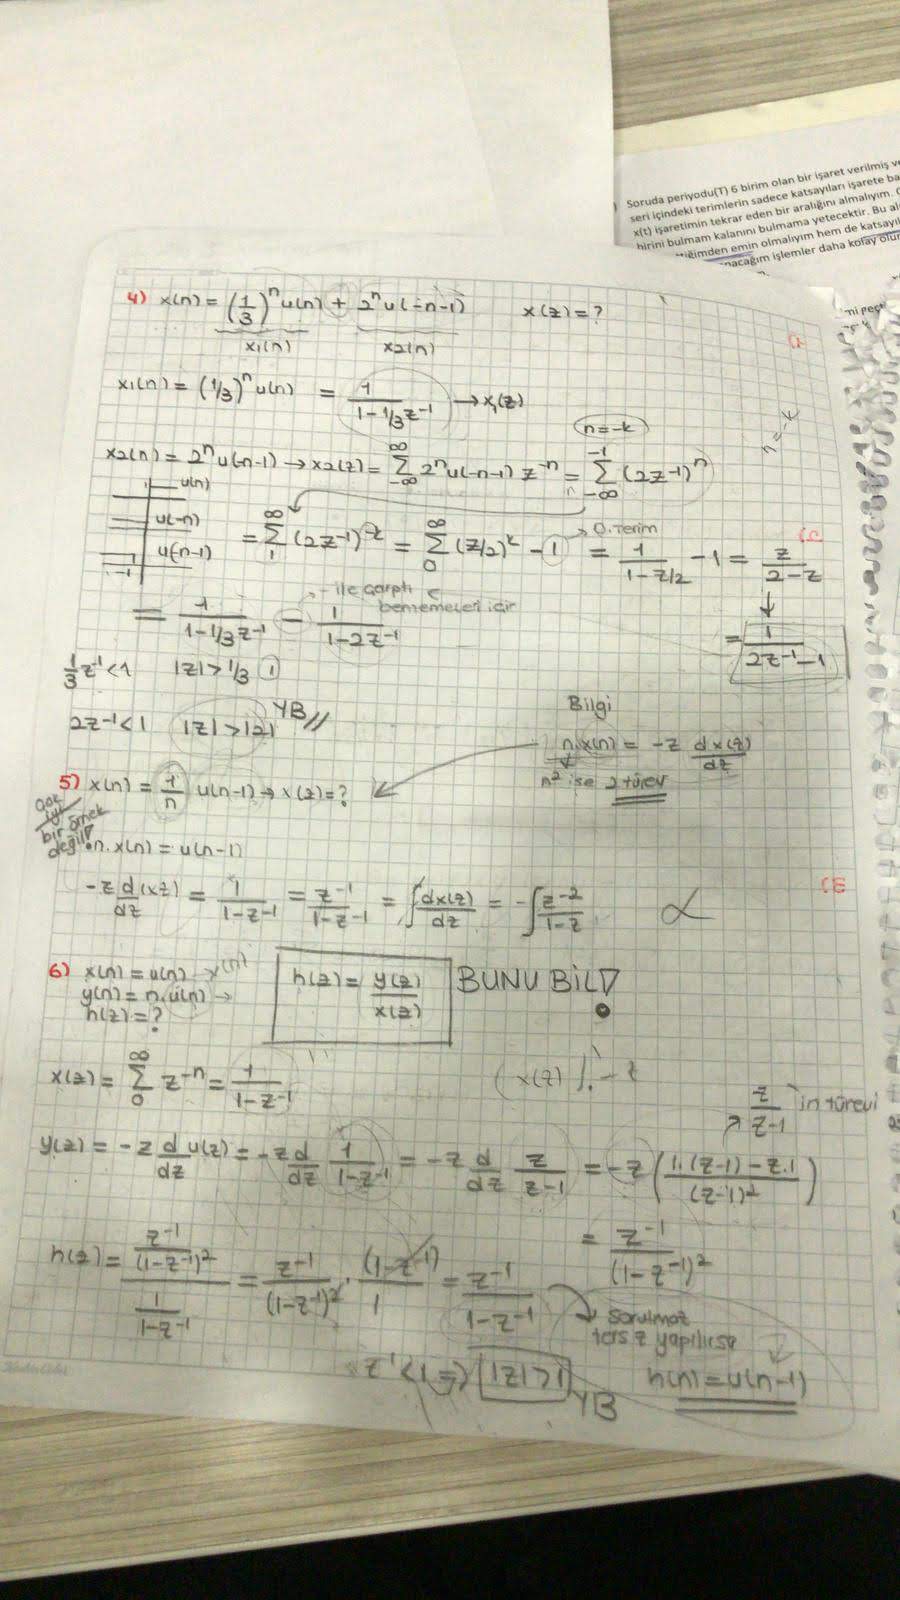 Soruda periyodu(T) 6 birim olan bir işaret verilmiş ve
seri içindeki terimlerin sadece katsayıları işarete ba
x(t) işaretimin tekrar eden bir aralığını almalıyım.
birini bulmam kalanını bulmama yetecektir. Bu al
tiğimden emin olmalıyım hem de katsayıl
nacağım işlemler daha kolay olur
4) x(n) = (1/3)^n u(n) + 2^n u(-n-1) x(z) = ?
x1(n) x2(n)
x1(n) = (1/3)^n u(n) = 1/(1-1/3z^-1) → x1(z)
n=-k
n=-k
x2(n) = 2^n u(-n-1) → x2(z) = ∑_{-∞}^{∞} 2^n u(-n-1) z^-n = ∑_{-∞}^{-1} (2z^-1)^n
u(n)
u(-n)
u(-n-1)
-1
= ∑_{1}^{∞} (2z^-1)^-k = ∑_{0}^{∞} (z/2)^k - 1 → 0. terim = 1/(1-z/2) - 1 = z/(2-z)
= 1/(2z^-1 - 1)
= 1/(1-1/3z^-1) - 1/(1-2z^-1) → - ile çarptı benzemeleri için
1/3 z^-1 < 1 |z| > 1/3 1
2z^-1 < 1 |z| > |2| YB//
Bilgi
n.x(n) = -z dx(z)/dz
n² ise 2 türev
5) x(n) = 1/n u(n-1) → x(z) = ?
Çok iyi bir örnek değil!
n.x(n) = u(n-1)
-z d(xz)/dz = 1/(1-z^-1) = z^-1/(1-z^-1) = ∫ dx(z)/dz = -∫ z^-2/(1-z)
6) x(n) = u(n) x(n)
y(n) = n.u(n) →
h(z) = ?
h(z) = y(z)/x(z) BUNU BİL!
x(z) = ∑_{0}^{∞} z^-n = 1/(1-z^-1)
(x(z)) . -z
z/(z-1) in türevi
y(z) = -z d/dz u(z) = -z d/dz 1/(1-z^-1) = -z d/dz z/(z-1) = -z (1.(z-1) - z.1)/(z-1)²
= z^-1/(1-z^-1)²
h(z) = (z^-1/(1-z^-1)²)/(1/(1-z^-1)) = z^-1/(1-z^-1)² . (1-z^-1)/1 = z^-1/(1-z^-1)
→ sorulmaz
ters z yapılırsa
h(n) = u(n-1)
z^-1 < 1 => |z| > 1 YB